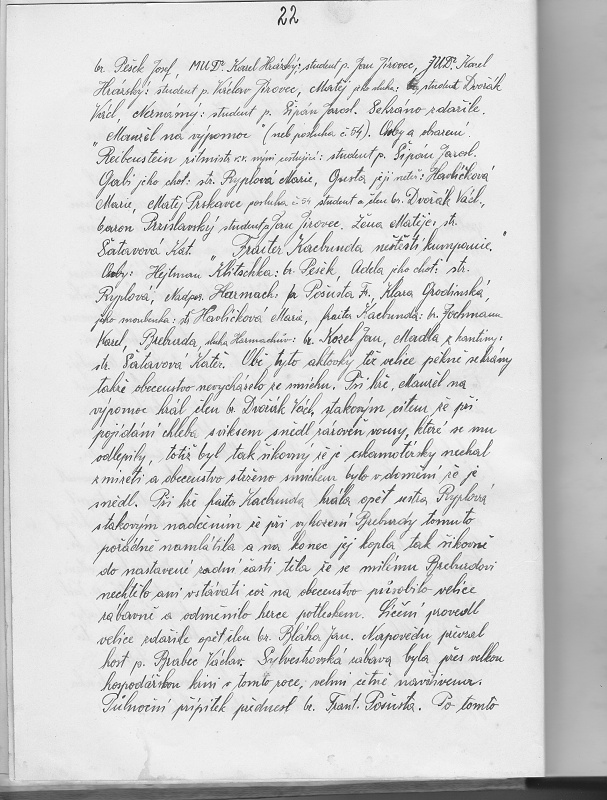 22
br. Pešek Josef, MUDr. Karel Hrárský: student p. Jan Jirovec, JUDr. Karel
Hrárský: student p. Václav Jirovec, Matěj jeho sluha: student Dvořák
Václ, Nervózný: student p. Šipán Jarosl. Sehráno zdařile.
"Manžel na výpomoc" (neb posluha č. 54). Osoby a obsazení.
Reibenstein ritmistr v.v. nyní cestující: student p. Šipán Jarosl.
Gabi jeho choť: str. Ryplová Marie, Gusta její neteř: Havlíčková
Marie, Matěj Srskavec posluha č. 54 student a člen br. Dvořák Václ.,
baron Przislavský student p. Jan Jirovec. Žena Matěje: str.
Šatavová Kat. "Frajter Kacbunda neštěstí kumpanie."
Osoby: Hejtman Klitschka: br. Pešek, Adéla jeho choť: str.
Ryplová, Nadpor. Harmach: br. Pošusta F., Klára Grodinská,
jeho snoubenka: str. Havlíčková Marie, frajtr Kacbunda: br. Jochmann
Karel, Breburda, sluha Harmachův: br. Nosel Jan, Madla z kantiny:
str. Šatavová Kateř. Obě tyto aktovky též velice pěkně sehrány
takže obecenstvo nevycházelo ze smíchu. Při hře, Manžel na
výpomoc hrál člen br. Dvořák Václ, s takovým citem že při
pojídání chleba s viksem snědl zároveň vousy, které se mu
odlepily, totiž byl tak šikovný že je eskamotérsky nechal
zmizeti a obecenstvo stiženo smíchem bylo v domění že je
snědl. Při hře frajtr Kacbunda hrála opět sestra Ryplová
s takovým nadšením že při vyhození Breburdy tomuto
pořádně namlátila a na konec jej kopla tak šikovně
do nastavené zadní části těla že se milému Breburdovi
nechtělo ani vstávati což na obecenstvo působilo velice
zábavně a odměnilo herce potleskem. Líčení provedl
velice zdařile opět člen br. Bláha Jan. Nápovědu převzal
host p. Brabec Václav. Sylvestrovská zábava byla přes velkou
hospodářskou krisi v tomto roce, velmi četně navštívena.
Půlnoční přípitek přednesl br. Frant. Pošusta. Po tomto